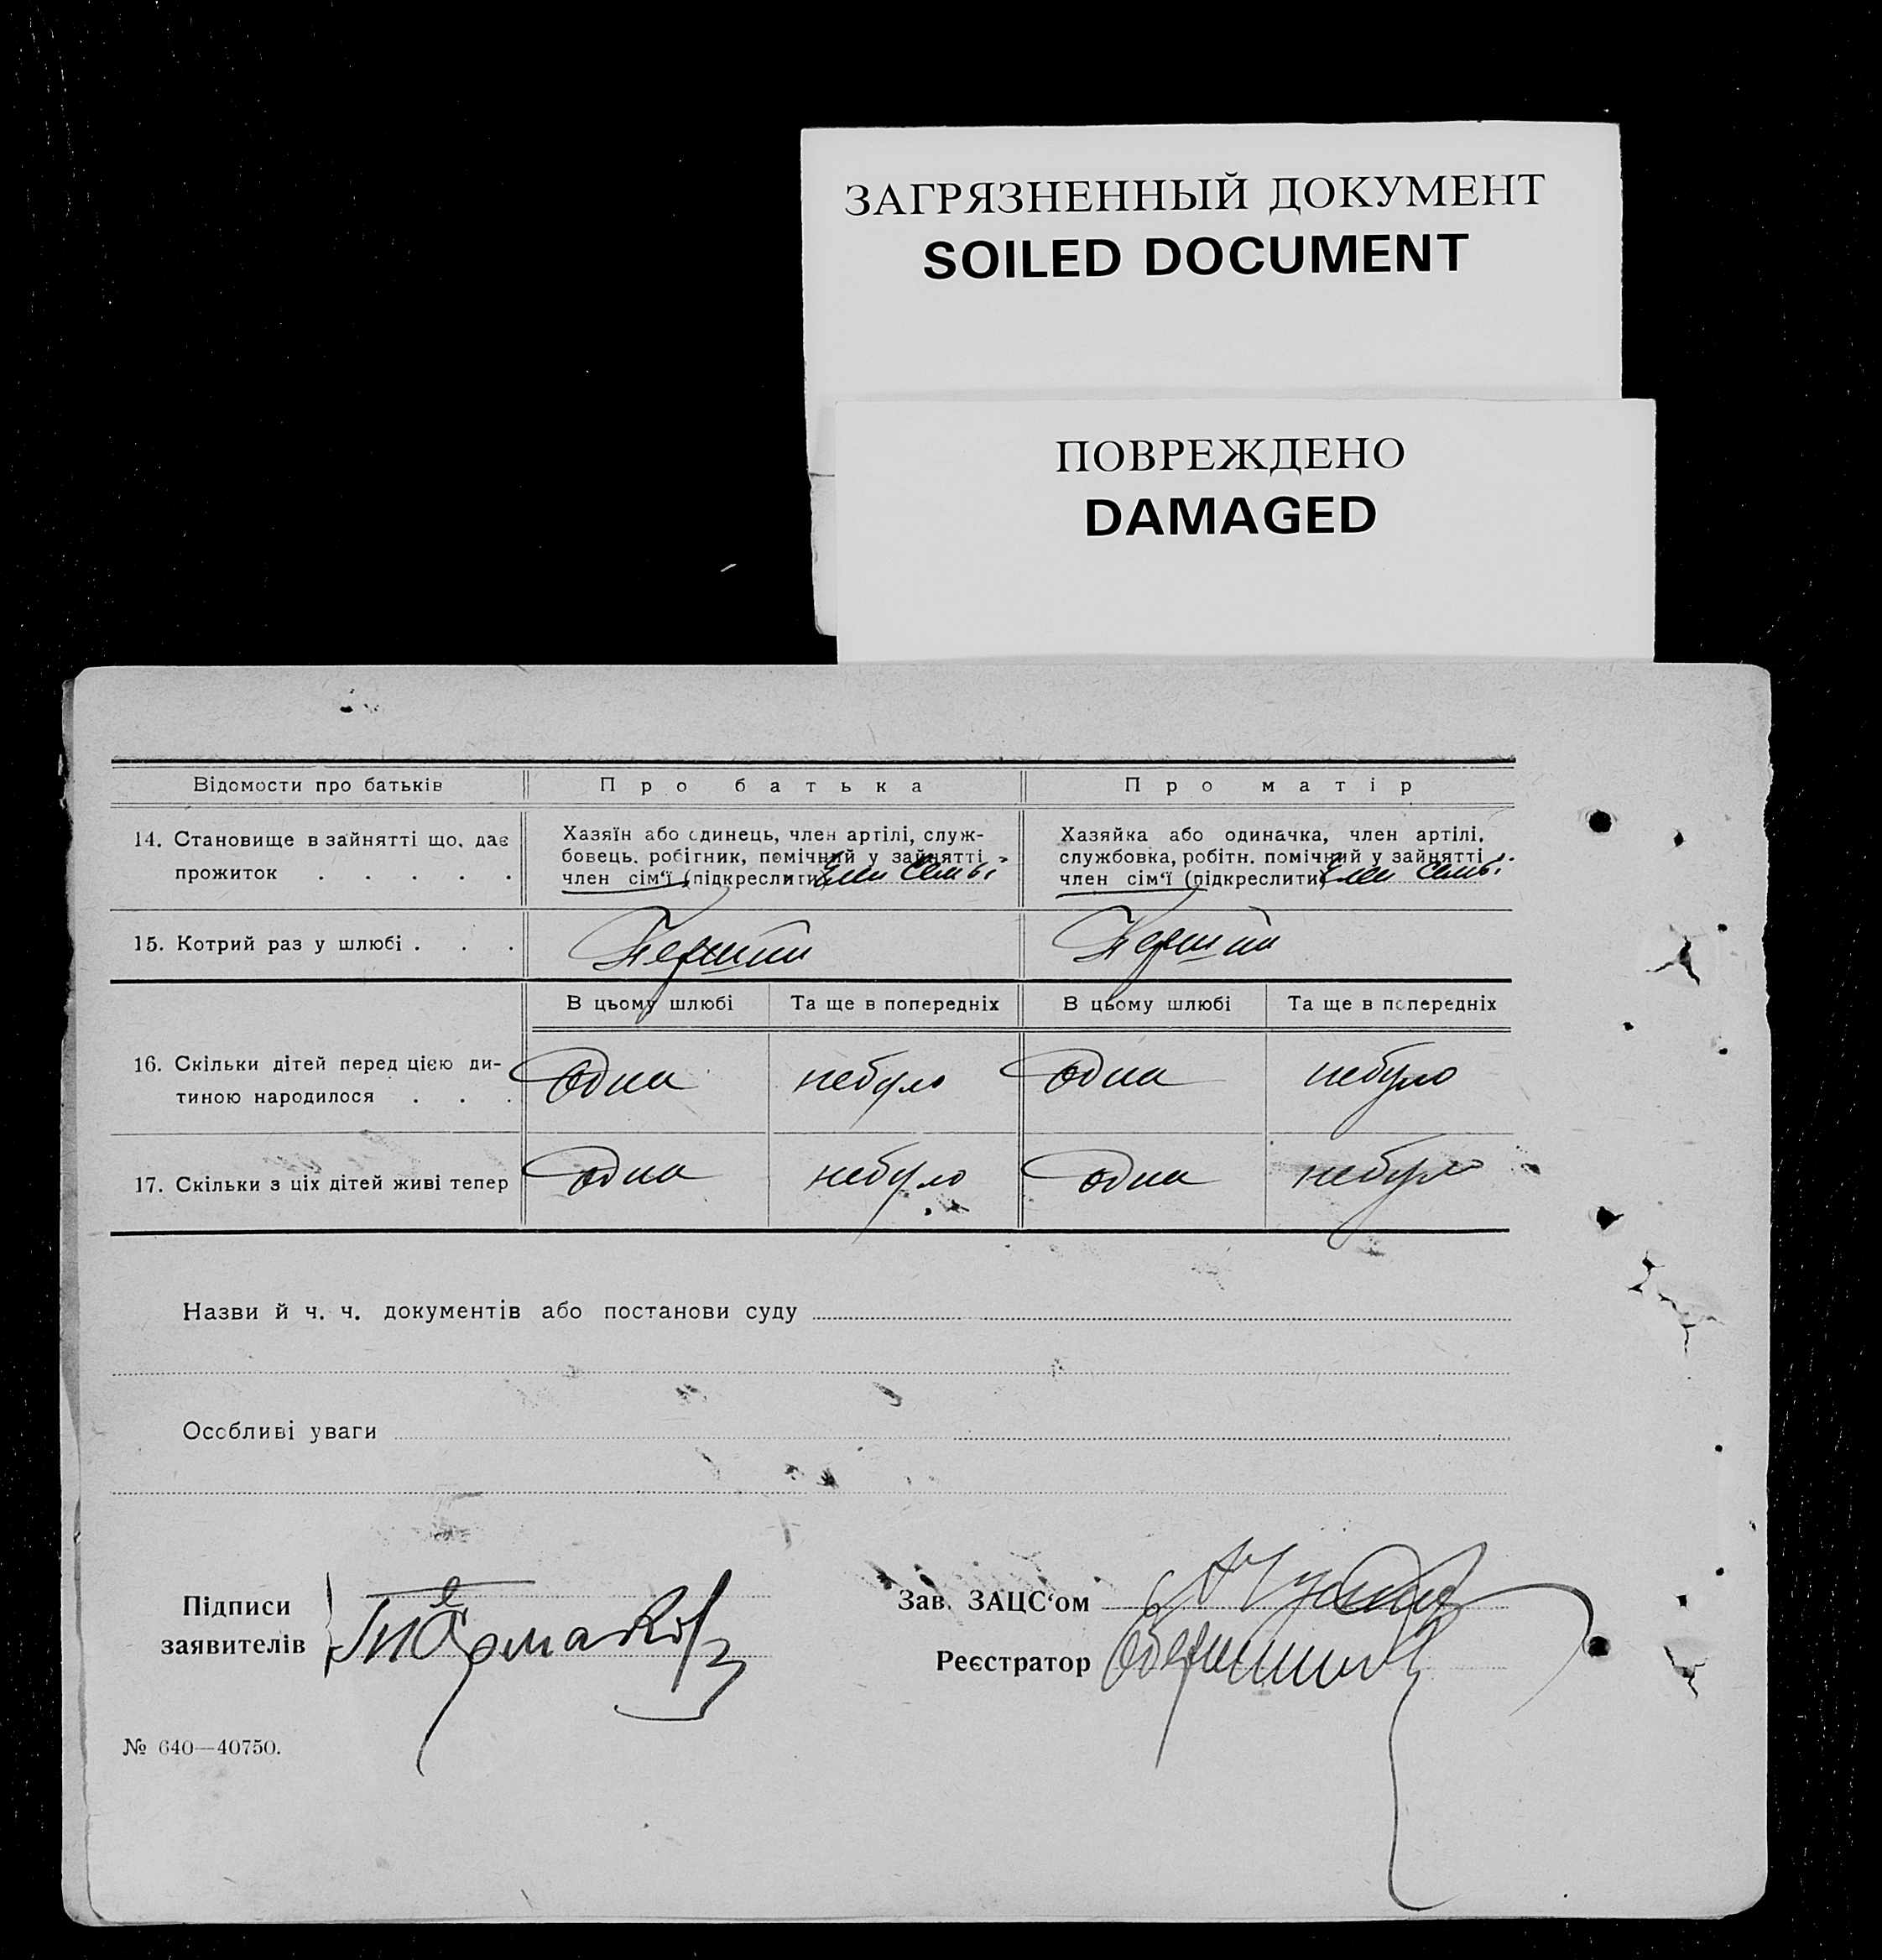 ЗАГРЯЗНЕННЫЙ ДОКУМЕНТ
SOILED DOCUMENT
ПОВРЕЖДЕНО
DAMAGED
Відомости про батьків
Про батька
Про матір
14. Становище в зайнятті що, дає
прожиток . . . . .
Хазяїн або єдинець, член артілі, служ-
бовець. робітник, помічний у зайнятті -
член сім'ї (підкреслити) Член Семьі
Хазяйка або одиначка, член артілі,
службовка, робітн. помічний у зайнятті
член сім'ї (підкреслити) Член Семьі
15. Котрий раз у шлюбі . . .
Перший
Перший
В цьому шлюбі
Та ще в попередніх
В цьому шлюбі
Та ще в попередніх
16. Скільки дітей перед цією ди-
тиною народилося . . .
одна
небуло
одна
небуло
17. Скільки з ціх дітей живі тепер
одна
небуло
одна
небуло
Назви й ч. ч. документів або постанови суду
Особливі уваги
Підписи
заявителів
Зав. ЗАЦС'ом
Реєстратор
№ 640—40750.